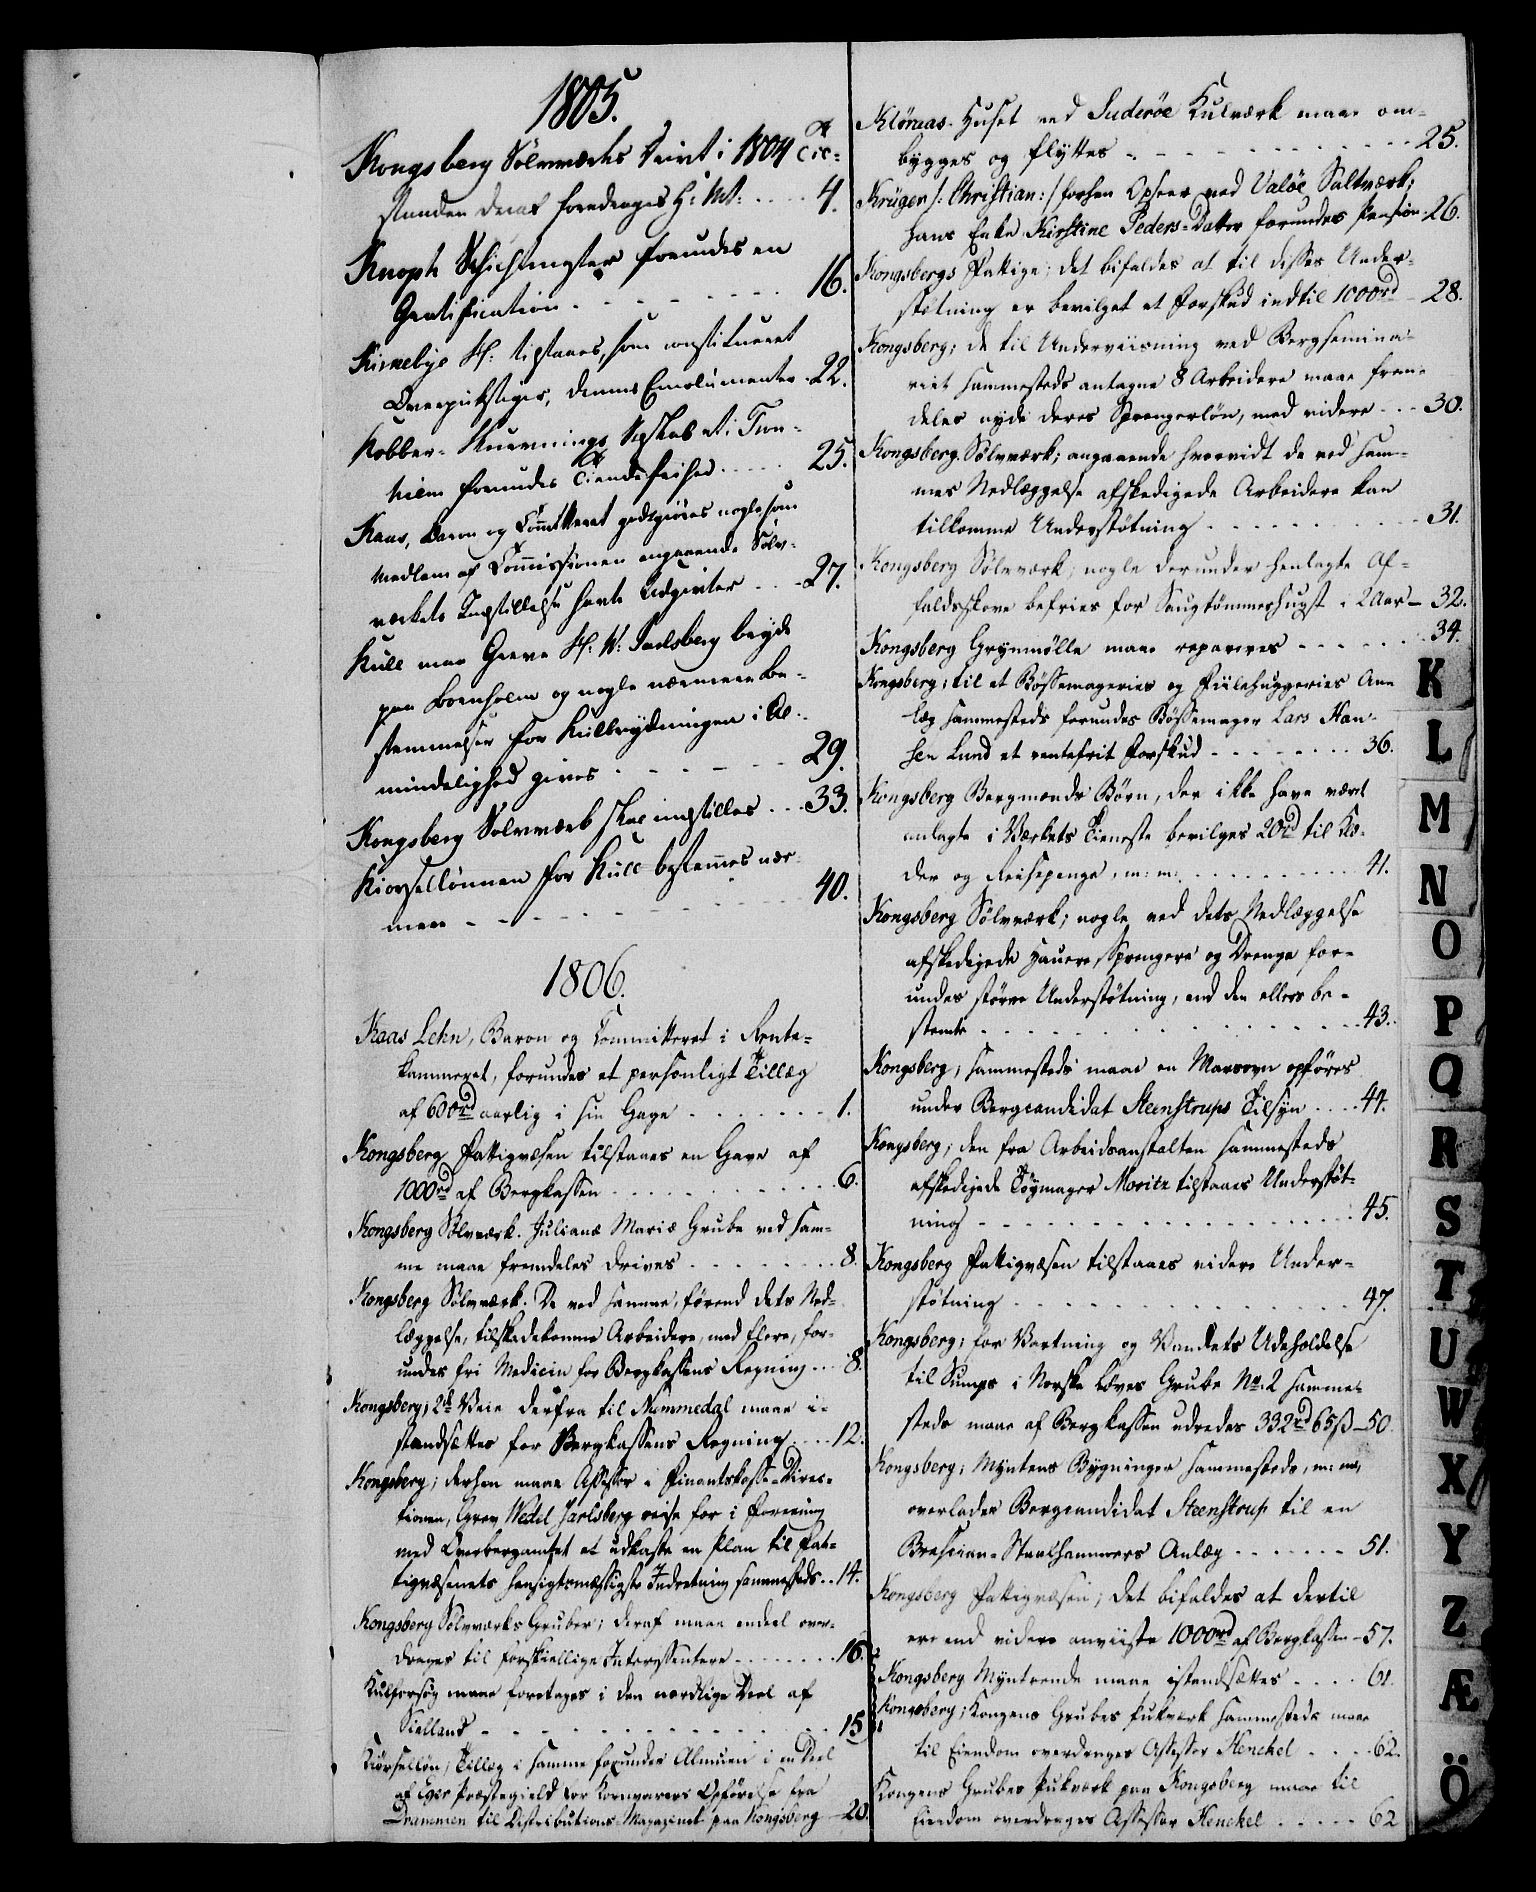 1805.
Kongsberg Sölvværks Drivt i 1804 Tie-
standen deraf foredrages H: Mt: .... 4.
Knoph Schichtmester forundes en
Gratification - - - - - - - - 16.
Kirnebye H: tilstaaes, som constitueret
Overpukstiger, dennes Emolumenter .22.
Kobber- Kuurnings Selskabet i Tron-
hiem forundes Tiendefrihed ..... 25.
Kaas, Baron og Committeret godtgiöres nogle som
Medlem af Commissionen angaaende Sölv-
værkets Indstillelse havte Udgivter . . -27.
Kull maa Greve H. W. Jarlsberg bryde
paa Bornholm og nogle nærmere Be-
stemmelser for Kullbrydningen i Al-
mindelighed gives - - - - - - 29.
Kongsberg Sölvværk skal indstilles ... 33.
Kiorsellönnen for Kull bestemmes nær-
mere - - - - - - - - - - - 40.
1806.
Kaas Lehn, Baron og Committeret i Rente-
kammeret, forundes et personligt Tillæg
af 600rd aarlig i sin Gage . . . . . . . 1.
Kongsberg Fattigvæsen tilstaaes en Gave af
1000rd af Bergkassen . . . . . . . . . . . . 6.
Kongsberg Sölvværk. Julianæ Mariæ Grube ved sam-
me maae fremdeles drives . . . . . . . . 8.
Kongsberg Sölvværk. De ved samme, förend dets Ned-
læggelse, tilskadekomne Arbeidere, med flere, for-
undes fri Medicin for Bergkassens Regning ... 8.
Kongsberg; 2de Veie derfra til Nummedal maae i-
standsættes for Bergkassens Regning .... 12.
Kongsberg; derhen maae Assessor i Finantskasse-Direc-
tionen, Grev Wedel Jarlsberg reise for i Forening
med Overbergamtet at udkaste en Plan til Fat-
tigvæsenets hensigtsmæssigste Indretning sammesteds .. 14.
Kongsberg Sölvværks Gruber; deraf maae endeel over-
drages til forskiellige Interessentere - - - - - - - . 16.
Kulforsög maae foretages i den nordlige Deel af
Siælland - - - - - - - - - - - - - - - 15
Kiörsellön; Tillæg i samme forundes Almuen i en Deel
af Eger Præstegield for Kornvarers Opförelse fra
Drammen til Distributions-Magazinet paa Kongsberg - 20.
Klöneas-Huset ved Suderöe Kulværk maae om-
bygges og flyttes - - - - - - - - - - - - - - 25.
Krüger /: Christian:/ forhen Opseer ved Valöe Saltværk;
hans Enke Kirstine Peders-Datter forundes Pension .26.
Kongsbergs Fattige; det bifaldes at til disses Under-
stötning er bevilget et Forskud indtil 1000rd - 28.
Kongsberg; de til Underviisning ved Bergsemina-
riet sammesteds antagne 8 Arbeidere maae frem-
deles nyde deres Sprengerlön, med videre - . . 30.
Kongsberg Sölvværk; angaaende hvorvidt de ved sam-
mes Nedlæggelse afskedigede Arbeidere kan
tilkomme Understötning . . . . . . . . . . . . 31.
Kongsberg Sölvværk; nogle derunder henlagte Af-
faldsskove befries for Saugtömmerhugst i 2 Aar - 32.
Kongsberg Grynmölle maae repareres - - - - . . 34.
Kongsberg; til et Bössemageries og Fiilehuggeries An-
læg sammesteds forundes Bössemager Lars Han-
sen Lund et rentefrit Forskud . . . . . . . . 36.
Kongsberg Bergmænds Börn, der ikke have været
anlagte i Værkets Tieneste bevilges 20rd til Kla-
der og Reisepenge, m: m: . . . . . . . . . . . 41.
Kongsberg Sölvværk; nogle ved dets Nedlæggelse
afskedigede Hauere, Sprengere og Drenge for-
undes större Understötning, end den ellers be-
stemte . . . . . . . . . . . . . . . . . . . 43.
Kongsberg; sammesteds maae en Masovn opföres
under Bergcandidat Steenstrups Tilsyn .... 44.
Kongsberg; den fra Arbeidsanstalten sammesteds
afskedigede Töymager Moritz tilstaaes Understöt-
ning - - - . . . . . . . . . . . . . . . . . 45.
Kongsberg Fattigvæsen tilstaaes videre Under-
stötning . . . . . . . . . . . . . . . . . . . 47.
Kongsberg; for Vartning og Vandets Udeholdelse
til Sumps i Norske Löves Grube No. 2 samme-
steds maae af Bergkassen udredes 332rd 65ß - 50.
Kongsberg; Myntens Bygninger sammesteds, m: m:,
overlades Bergcandidat Steenstrup til en
Brescian-Staalhammers Anlæg . . . . . . . . 51.
Kongsberg Fattigvæsen; det bifaldes at dertil
ere end videre anviiste 1000rd af Bergkassen - 57.
Kongsberg Myntrende maae istandsættes . . . . 61.
Kongsberg; Kongens Grubes Pukværk sammesteds maae
til Eiendom overdrages Assessor Henckel . . . . 62.
Kongens Grubes Pukværk paa Kongsberg maae til
Eiendom overdrages Assessor Henckel . . . . . 62
K
L
M
N
O
P
Q
R
S
T
U
W
X
Y
Z
Æ
Ö